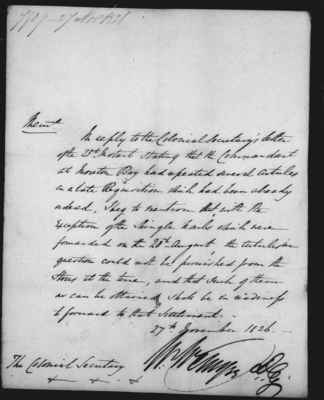 7707 - 27 Nov 1826
Memo
In reply to the Colonial Secretary's letter
of the 25th Instant stating that the Commandant
at Moreton Bay had repeated several articles
in a late Requisition which had been already
, I beg to mention that with the
exception of the Shingle Nails which were
forwarded on the 28th August the articles in
question could not be furnished from the
Stores at the time, and that such of them
as can be obtained shall be in readiness
to forward to that Settlement.
27th November 1826.
The Colonial Secretary